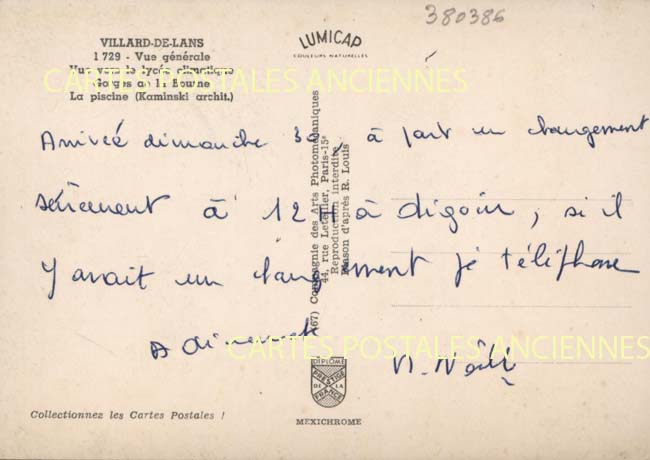 380386
VILLARD-DE-LANS
1 729 - Vue générale
Vue vers le lycée climatique
Gorges de la Bourne
La piscine (Kaminski archit.)
LUMICAP
COULEURS NATURELLES
CARTES POSTALES ANCIENNES
Arrivée dimanche 30 à part un changement
sûrement à 12H à digoin, si il
y avait un changement je téléphone
A dimanche
N. Noëlle
(67) Compagnie des Arts Photomécaniques
44, rue Letellier, Paris-15e
Reproduction interdite
Blason d'après R. Louis
CARTES POSTALES ANCIENNES
DIPLOME
PRESTIGE
DE LA
FRANCE
Collectionnez les Cartes Postales !
MEXICHROME